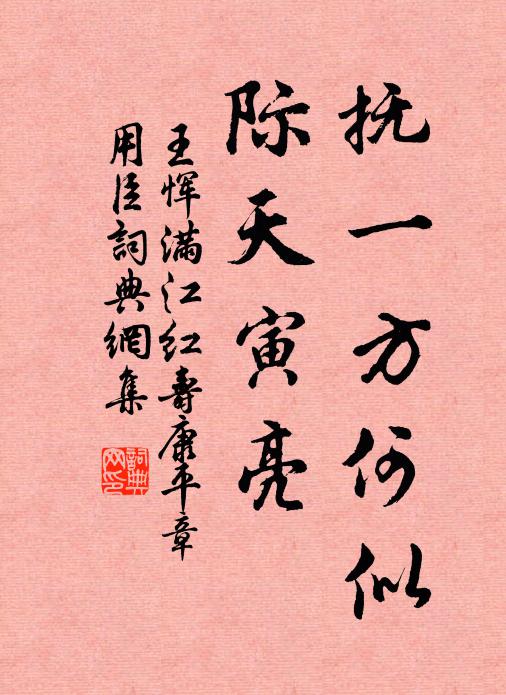 抚一方何似
际天寅亮
王恽满江红寿康平章
用臣詞典網集
詞典
网印